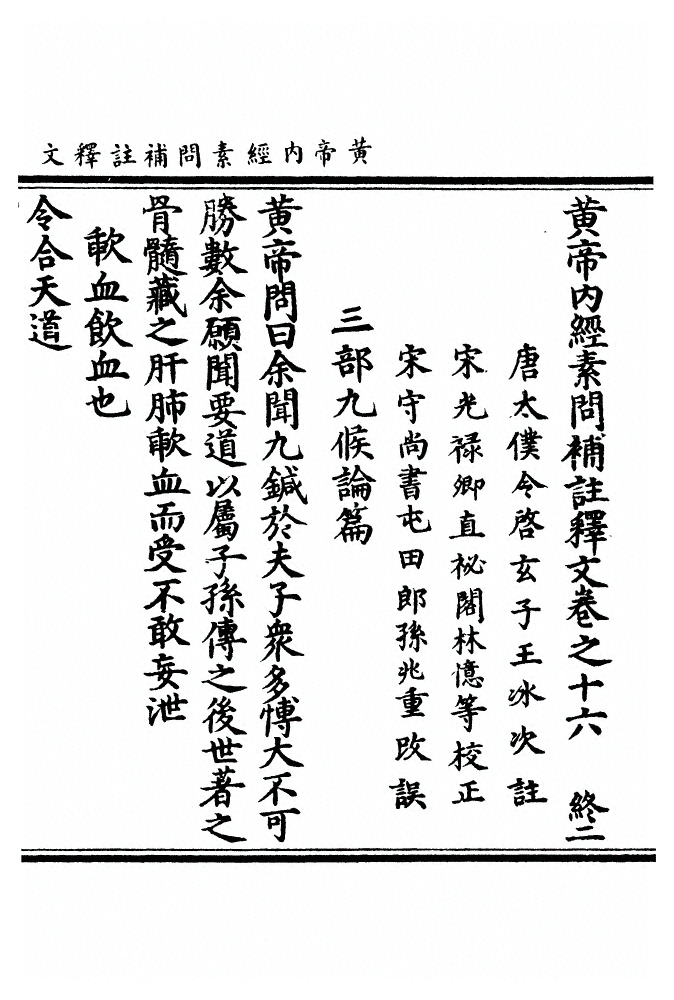 黄帝内經素問補註釋文
黄帝内經素問補註釋文卷之十六 終二
唐太僕令啓玄子王冰次註
宋光禄卿直祕閣林憶等校正
宋守尚書屯田郎孫兆重改誤
三部九候論篇
黄帝問曰余聞九鍼於夫子衆多愽大不可
勝數余願聞要道以屬子孫傳之後世著之
骨髓藏之肝肺歃血而受不敢妄泄
歃血飲血也
令合天道